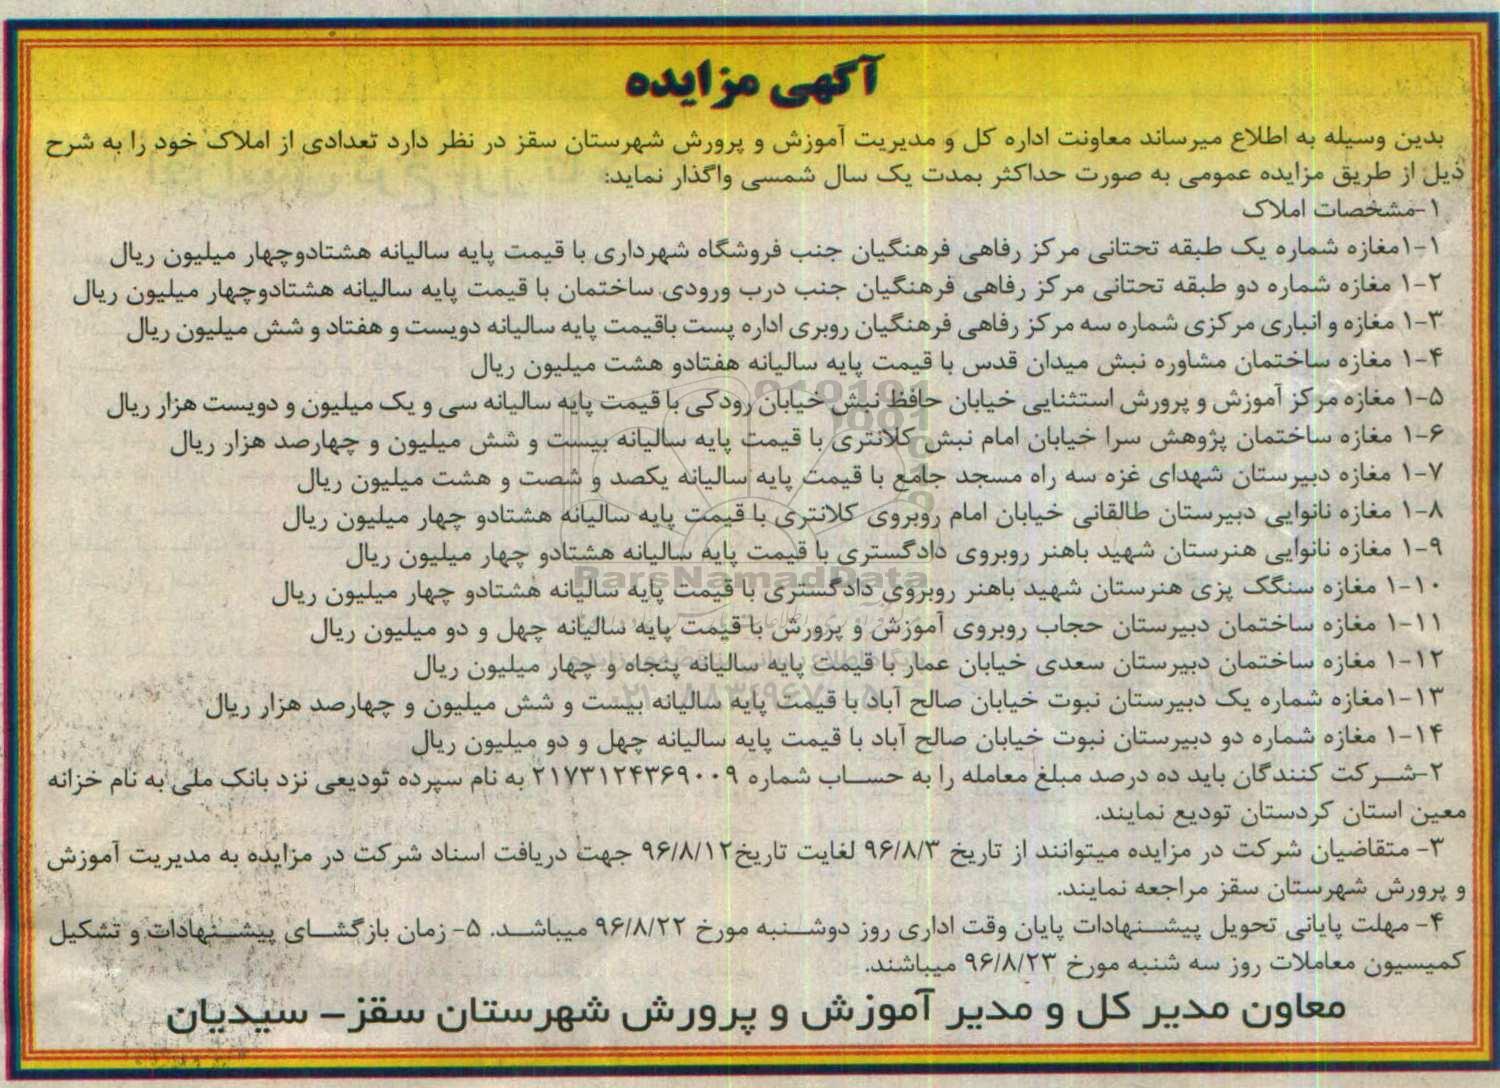 آگهی مزایده
بدین وسیله به اطلاع میرساند معاونت اداره کل و مدیریت آموزش و پرورش شهرستان سقز در نظر دارد تعدادی از املاک خود را به شرح
ذیل از طریق مزایده عمومی به صورت حداکثر بمدت یک سال شمسی واگذار نماید:
۱-مشخصات املاک
۱-۱مغازه شماره یک طبقه تحتانی مرکز رفاهی فرهنگیان جنب فروشگاه شهرداری با قیمت پایه سالیانه هشتادوچهار میلیون ریال
۱-۲ مغازه شماره دو طبقه تحتانی مرکز رفاهی فرهنگیان جنب درب ورودی ساختمان با قیمت پایه سالیانه هشتادوچهار میلیون ریال
۱-۳ مغازه و انباری مرکزی شماره سه مرکز رفاهی فرهنگیان روبری اداره پست باقیمت پایه سالیانه دویست و هفتاد و شش میلیون ریال
۱-۴ مغازه ساختمان مشاوره نبش میدان قدس با قیمت پایه سالیانه هفتادو هشت میلیون ریال
۱-۵ مغازه مرکز آموزش و پرورش استثنایی خیابان حافظ نبش خیابان رودکی با قیمت پایه سالیانه سی و یک میلیون و دویست هزار ریال
۱-۶ مغازه ساختمان پژوهش سرا خیابان امام نبش کلانتری با قیمت پایه سالیانه بیست و شش میلیون و چهارصد هزار ریال
۱-۷ مغازه دبیرستان شهدای غزه سه راه مسجد جامع با قیمت پایه سالیانه یکصد و شصت و هشت میلیون ریال
۱-۸ مغازه نانوایی دبیرستان طالقانی خیابان امام روبروی کلانتری با قیمت پایه سالیانه هشتادو چهار میلیون ریال
۱-۹ مغازه نانوایی هنرستان شهید باهنر روبروی دادگستری با قیمت پایه سالیانه هشتادو چهار میلیون ریال
۱-۱۰ مغازه سنگک پزی هنرستان شهید باهنر روبروی دادگستری با قیمت پایه سالیانه هشتادو چهار میلیون ریال
۱-۱۱ مغازه ساختمان دبیرستان حجاب روبروی آموزش و پرورش با قیمت پایه سالیانه چهل و دو میلیون ریال
۱-۱۲ مغازه ساختمان دبیرستان سعدی خیابان عمار با قیمت پایه سالیانه پنجاه و چهار میلیون ریال
۱-۱۳مغازه شماره یک دبیرستان نبوت خیابان صالح آباد با قیمت پایه سالیانه بیست و شش میلیون و چهارصد هزار ریال
۱-۱۴ مغازه شماره دو دبیرستان نبوت خیابان صالح آباد با قیمت پایه سالیانه چهل و دو میلیون ریال
۲-شرکت کنندگان باید ده درصد مبلغ معامله را به حساب شماره ۲۱۷۳۱۲۴۳۶۹۰۰۹ به نام سپرده تودیعی نزد بانک ملی به نام خزانه
معین استان کردستان تودیع نمایند.
۳- متقاضیان شرکت در مزایده میتوانند از تاریخ ۹۶/۸/۳ لغایت تاریخ۹۶/۸/۱۲ جهت دریافت اسناد شرکت در مزایده به مدیریت آموزش
و پرورش شهرستان سقز مراجعه نمایند.
۴- مهلت پایانی تحویل پیشنهادات پایان وقت اداری روز دوشنبه مورخ ۹۶/۸/۲۲ میباشد. ۵- زمان بازگشای پیشنهادات و تشکیل
کمیسیون معاملات روز سه شنبه مورخ ۹۶/۸/۲۳ میباشند.
معاون مدیر کل و مدیر آموزش و پرورش شهرستان سقز- سیدیان
ParsNamadData